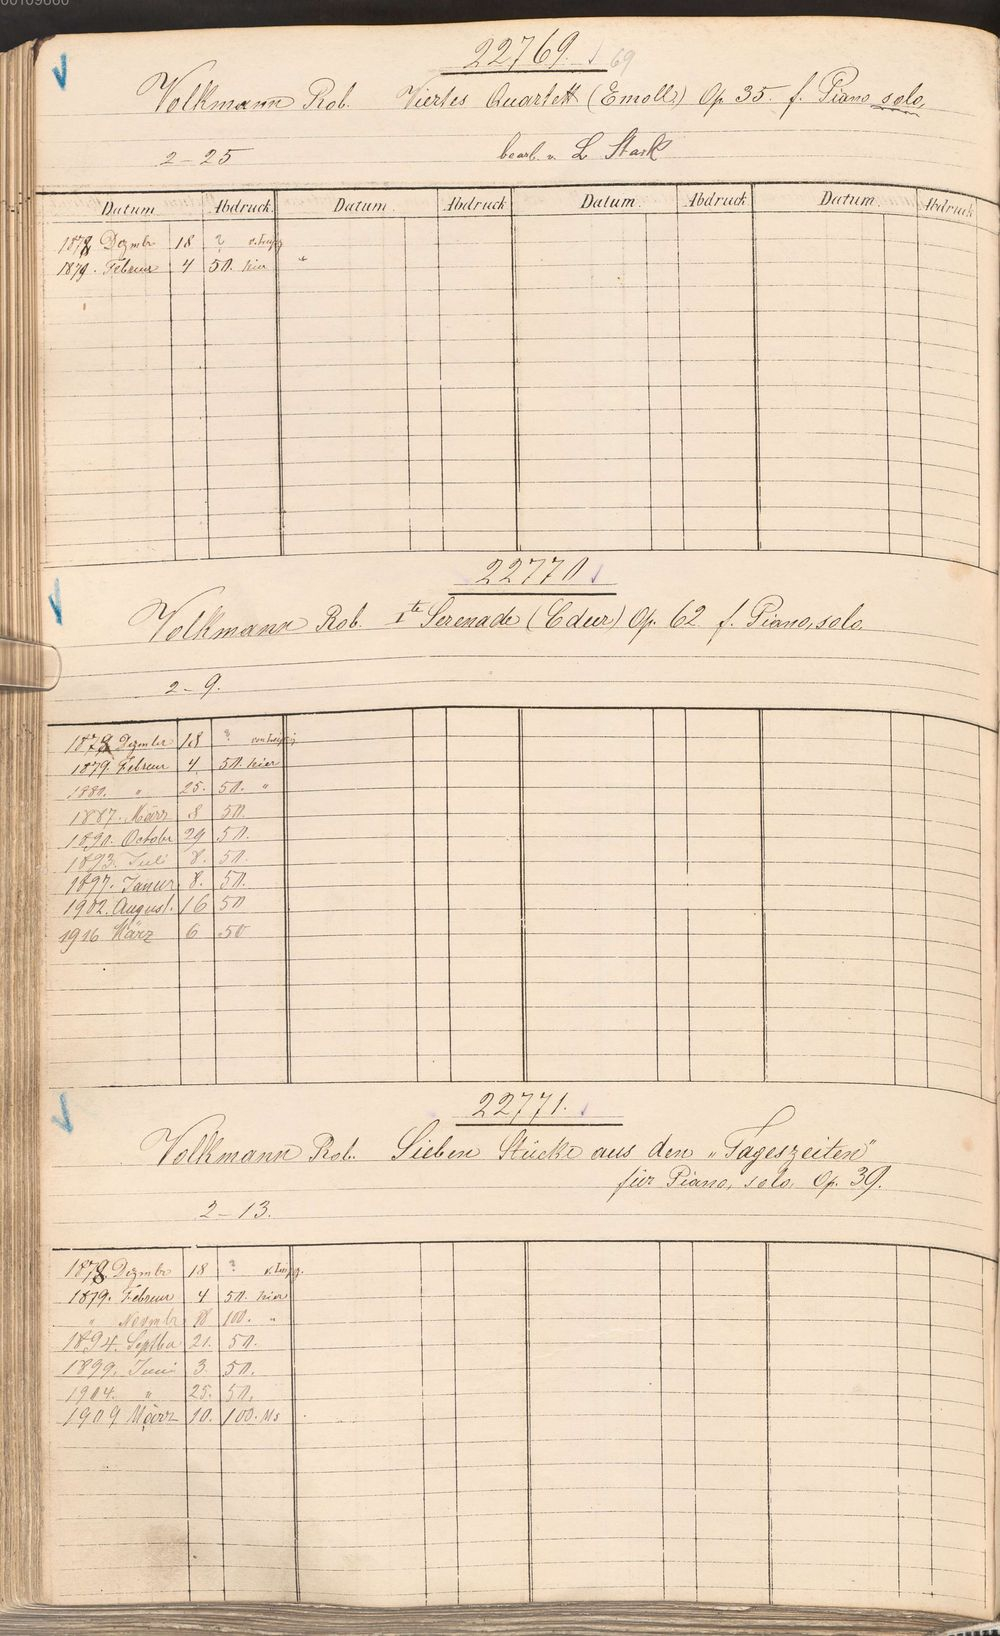 22769.
69
Volkmann Rob. Viertes Quartett (Emoll) Op 35. f. Piano solo,
2-25 bearb. v. L Stark
Datum Abdruck. Datum. Abdruck Datum. Abdruck Datum. Abdruck
1878 Dezmbr 18 ? v. Leipzig
1879. Februar 4 50. hier "
22770
Volkmann Rob. Ite Serenade (Cdur) Op. 62 f. Piano, solo.
2-9.
1878 Dezmber 18 ? von Leipzig
1879. Februar 4 50. hier
1880. " 25. 50. "
1887. März 8 50.
1890. Octobr 29 50.
1893. Juli 8. 50.
1897. Januar 8. 50.
1902. August. 16 50
1916 März 6 50
22771.
Volkmann Rob. Sieben Stücke aus den „Tageszeiten"
für Piano, solo, Op. 39.
2-13.
1878 Dezmbr 18 ? v. Leipzg.
1879. Februar 4 50. hier
" Novmbr 18 100. "
1894. Septba 21. 50.
1899. Juni 3. 50.
1904. " 25. 50.
1909 März 10. 100. Ms